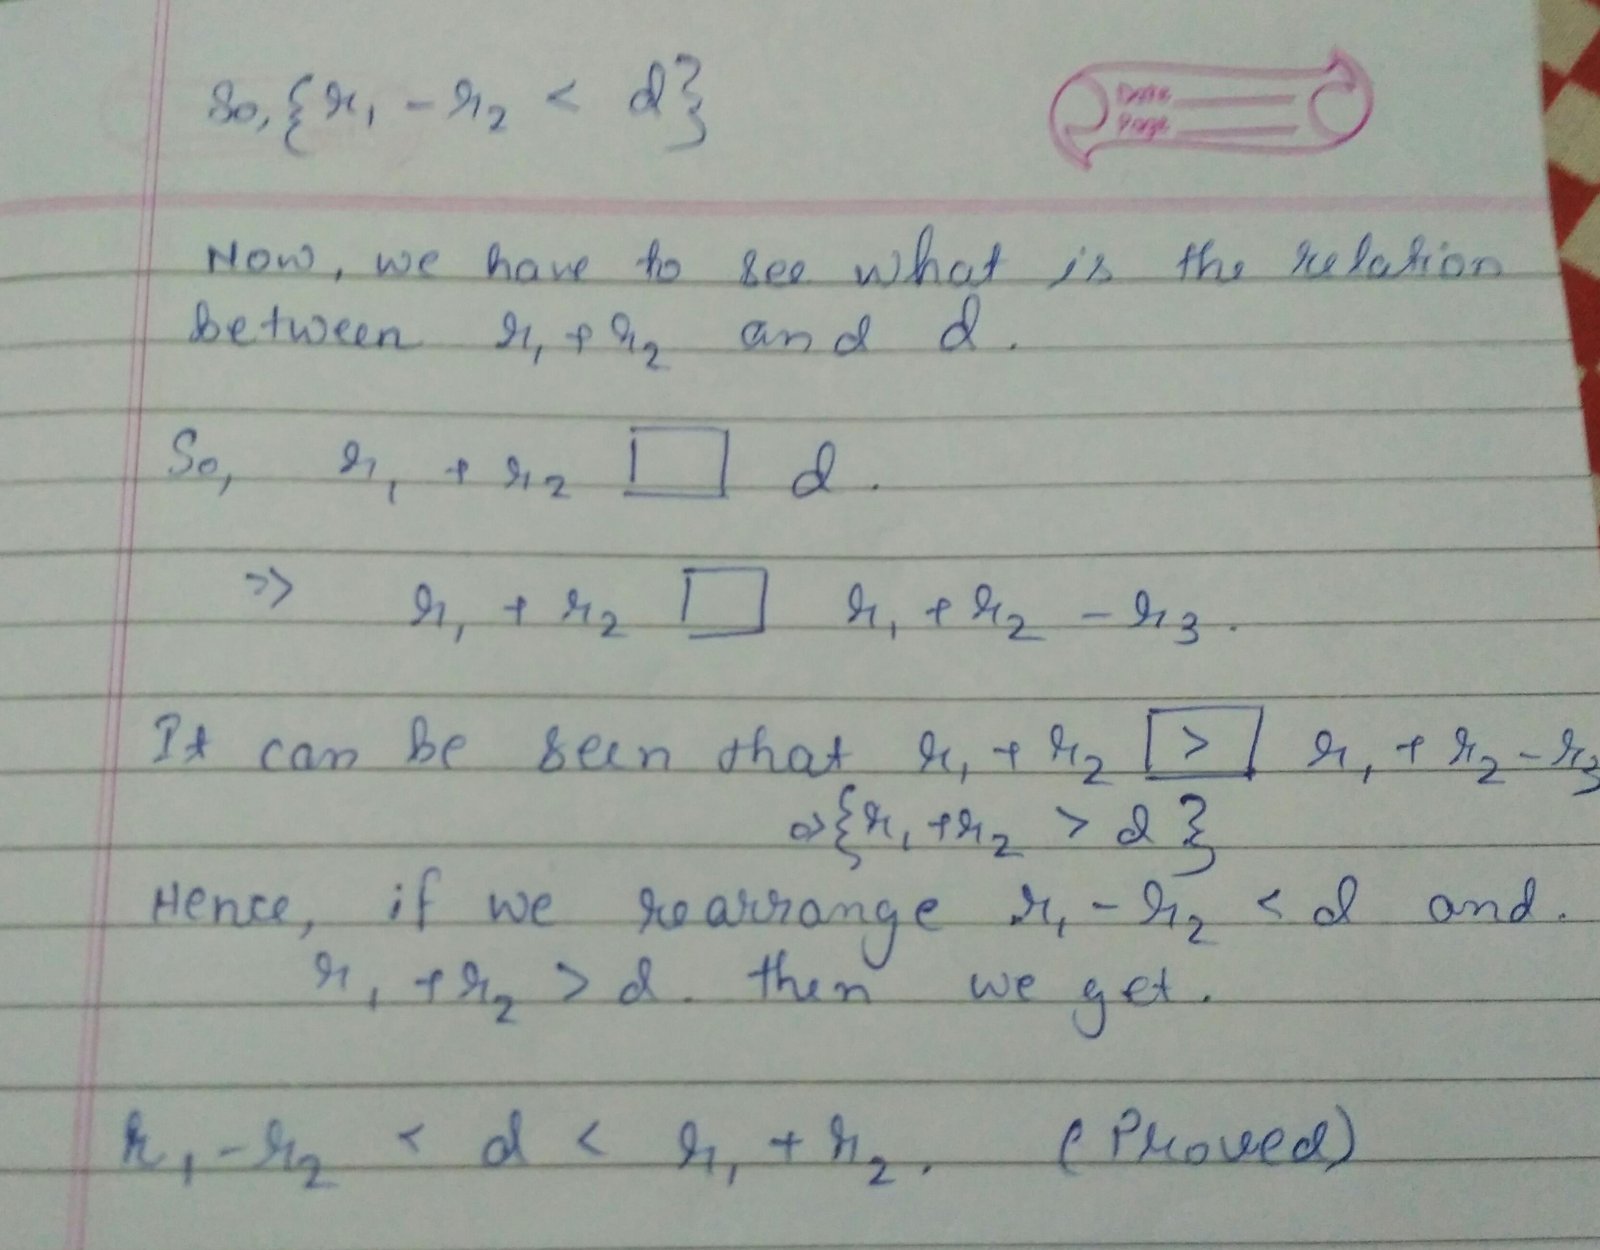 So, {r₁ - r₂ < d}
Date
Page
Now, we have to see what is the relation
between r₁ + r₂ and d.
So, r₁ + r₂ □ d.
⇒ r₁ + r₂ □ r₁ + r₂ - r₃.
It can be seen that r₁ + r₂ [>] r₁ + r₂ - r₃
⇒ {r₁ + r₂ > d}
Hence, if we rearrange r₁ - r₂ < d and.
r₁ + r₂ > d. then we get.
r₁ - r₂ < d < r₁ + r₂. (Proved)